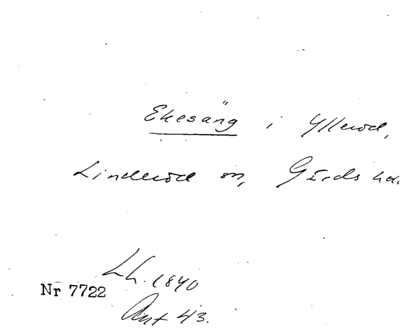 Ekesäng i Ylleröd,
Linderöd sn, Gärds hd.
Lh. 1840
Nr 7722
Ant 43.